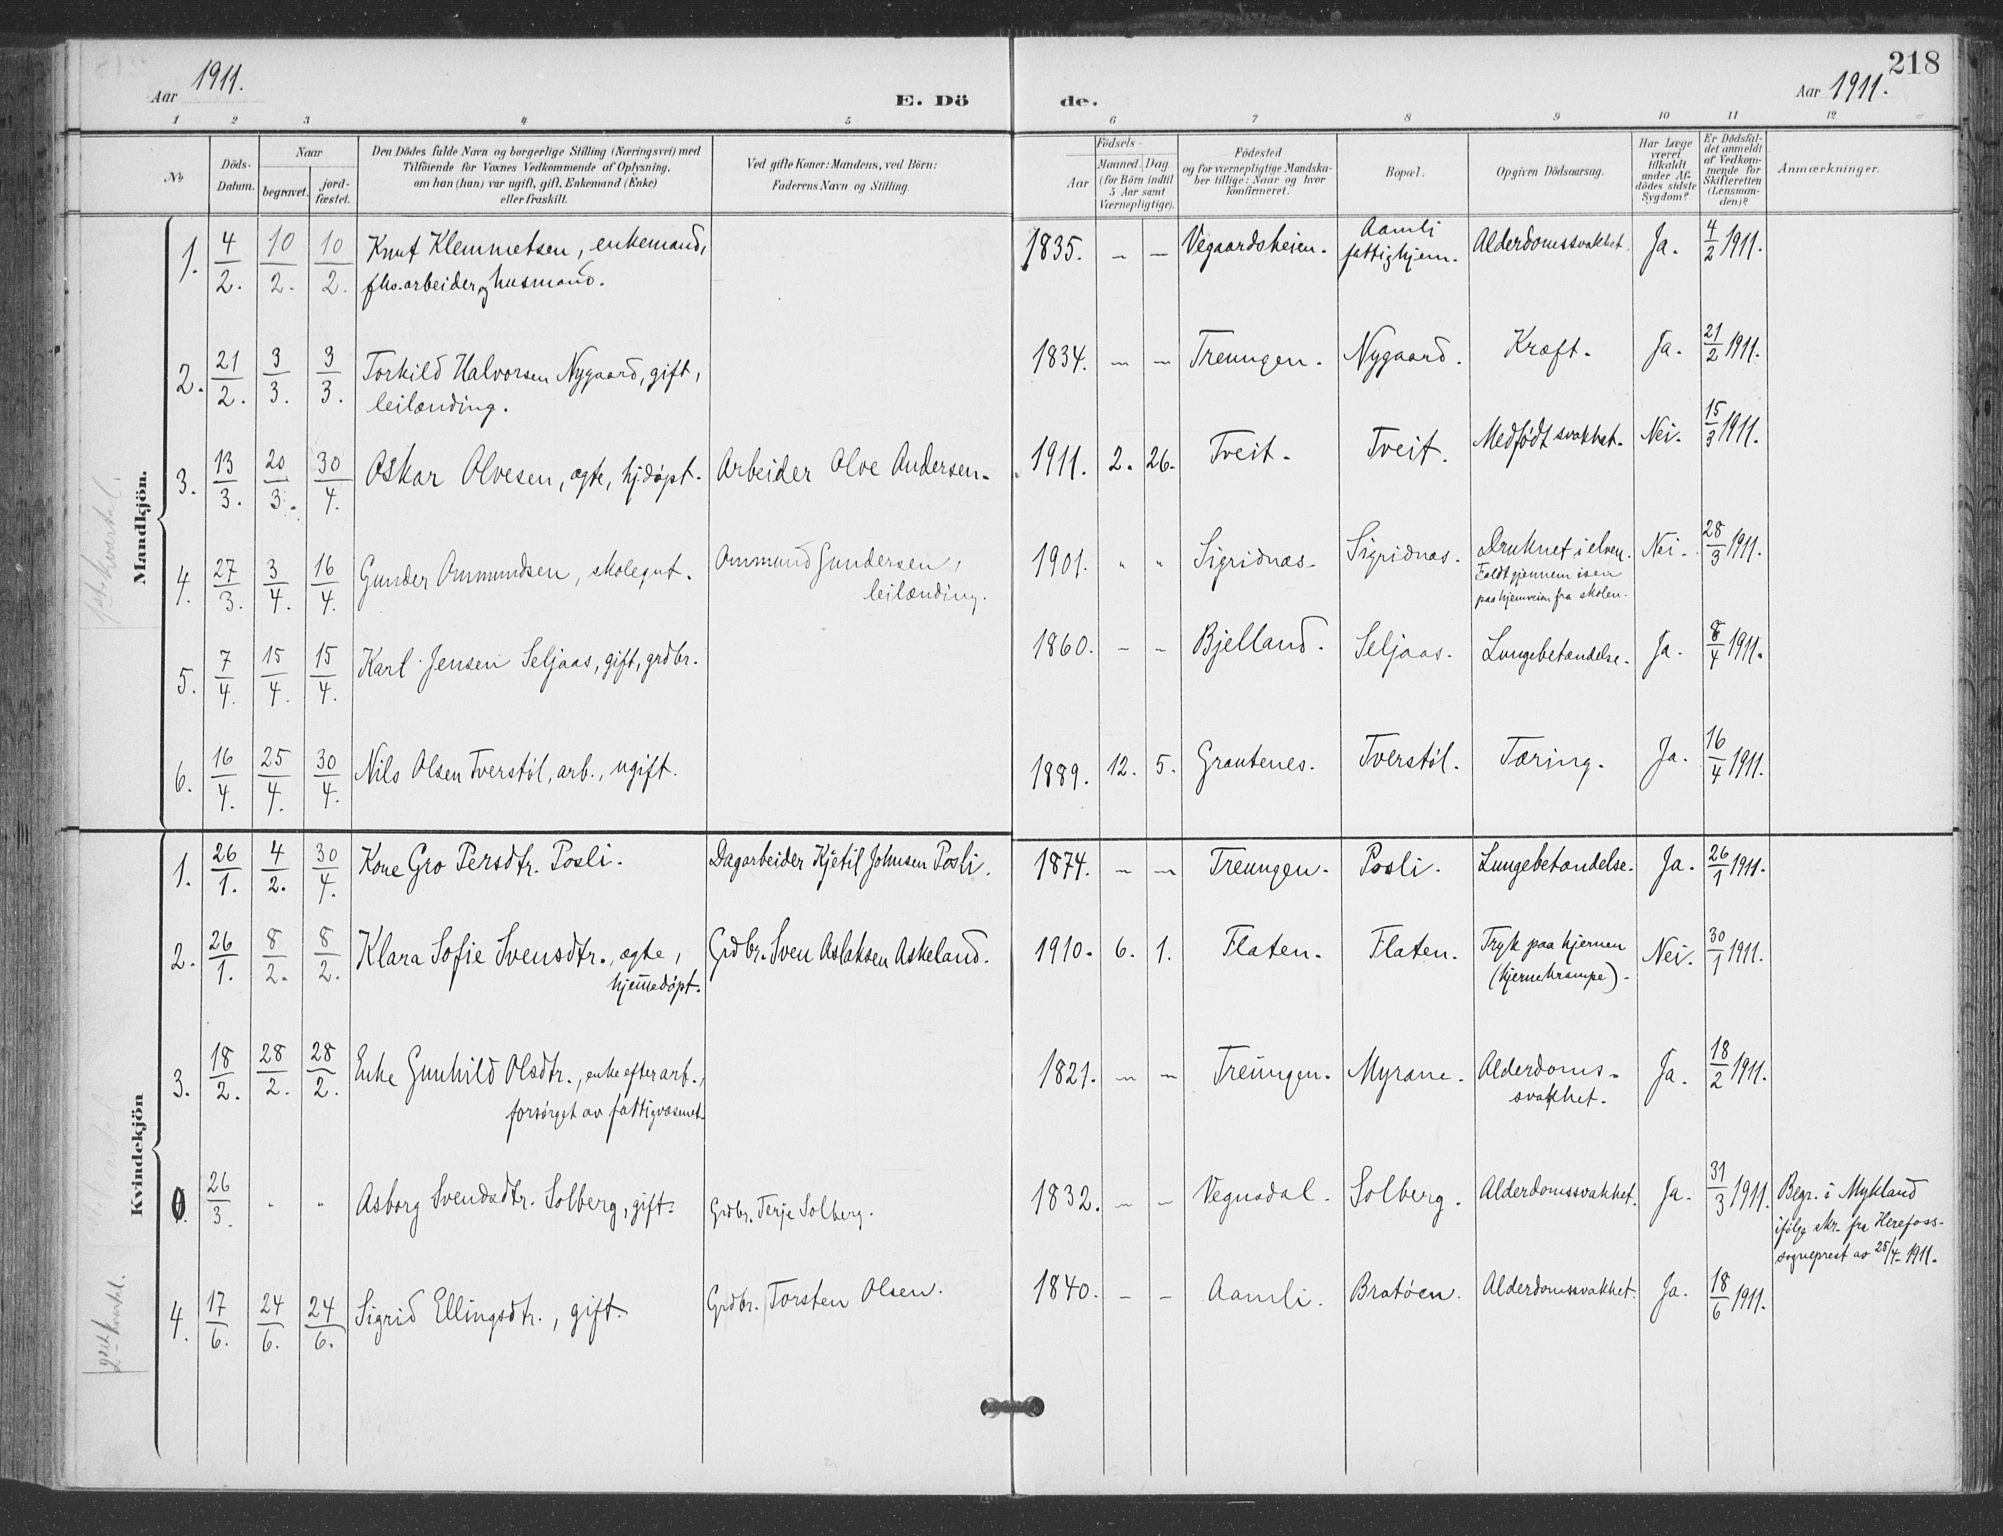 Aar 1911.
E. Dö
de.
218
Aar 1911.
1 2 3 4 5 6 7 8 9 10 11 12
No
Döds-
Datum.
Naar
begravet.
jord-
fæstet.
Den Dödes fulde Navn og borgerlige Stilling (Næringsvei) med
Tilföiende for Voxnes Vedkommende af Oplysning,
om han (hun) var ugift, gift, Enkemand (Enke)
eller fraskilt.
Ved gifte Koner: Mandens, ved Börn:
Faderens Navn og Stilling.
Födsels-
Aar
Maaned. Dag.
(for Börn indtil
5 Aar samt
Værnepligtige).
Födested
og for værnepligtige Mandska-
ber tillige: Naar og hvor
konfirmeret.
Bopæl.
Opgiven Dödsaarsag.
Har Læge
været
tilkaldt
under Af-
dödes sidste
Sygdom?
Er Dödsfal-
det anmeldt
af Vedkom-
mende for
Skifteretten
(Lensman-
den)?
Anmærkninger.
Mandkjön.
1. 4/2. 10/2. 10/2. Knut Klemmetsen, enkemand, 1835. — — Vegaardsheien. Aamli Alderdomssvakhet. Ja. 4/2 1911.
fhv. arbeider og husmand. fattighjem.
2. 21/2. 3/3. 3/3. Torkild Halvorsen Nygaard, gift, 1834. — — Treungen. Nygaard. Kræft. Ja. 21/2 1911.
leilænding.
3. 13/3. 20/3. 30/4. Oskar Olvesen, ægte, hj.døpt. Arbeider Olve Andersen. 1911. 2. 26. Tveit. Tveit. Medfødt svakhet. Nei. 15/3 1911.
4. 27/3. 3/4. 16/4. Gunder Ommundsen, skolegut. Ommund Gundersen, 1901. " " Sigridnæs. Sigridnæs. Druknet i elven. Nei. 28/3 1911.
leilænding. Faldt gjennem isen
paa hjemveien fra skolen.
5. 7/4. 15/4. 15/4. Karl Jensen Seljaas, gift, grdbr. 1860. — — Bjelland. Seljaas. Lungebetændelse. Ja. 8/4 1911.
6. 16/4. 25/4. 30/4. Nils Olsen Tverstøl, arb., ugift. 1889. 12. 5. Grautenes. Tverstøl. Tæring. Ja. 16/4 1911.
Kvindekjön
1. 26/1. 4/2. 30/4. Kone Gro Persdtr. Posli. Dagarbeider Kjetil Johnsen Posli. 1874. — — Treungen. Posli. Lungebetændelse. Ja. 26/1 1911.
2. 26/1. 8/2. 8/2. Klara Sofie Svensdtr., ægte, Grdbr. Sven Aslaksen Askeland. 1910. 6. 1. Flaten. Flaten. Tryk paa hjernen Nei. 30/1 1911.
hjemmedøpt. (hjernekrampe).
3. 18/2. 28/2. 28/2. Enke Gunhild Olsdtr., enke efter arb., 1821. — — Treungen. Myrane. Alderdoms- Ja. 18/2 1911.
forsørget av fattigvæsenet. svakhet.
0. 26/3. " " Asborg Svendsdtr. Solberg, gift. Grdbr. Terje Solberg. 1832. — — Vegusdal. Solberg. Alderdomssvakhet. Ja. 31/3 1911. Begr. i Mykland
ifølge skr. fra Herefoss-
sogneprest av 25/4-1911.
4. 17/6. 24/6. 24/6. Sigrid Ellingsdtr., gift. Grdbr. Torsten Olsen. 1840. — — Aamli. Bratøen. Alderdomssvakhet. Ja. 18/6 1911.